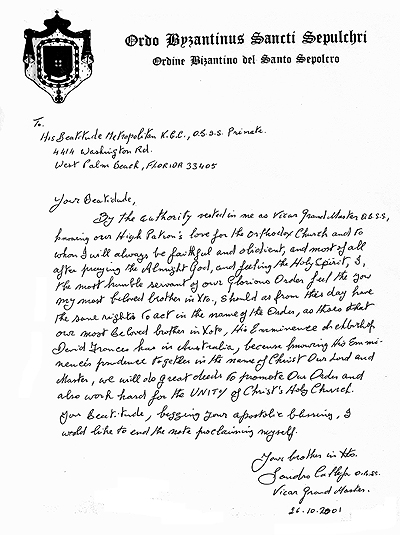 Ordo Byzantinus Sancti Sepulchri
Ordine Bizantino del Santo Sepolcro
To.
His Beatitude Metropolitan K.G.C., O.B.S.S. Primate.
4414 Washington Rd.
West Palm Beach, FLORIDA 33405
Your Beatitude,
By the authority vested in me as Vicar Grand Master O.B.S.S,
knowing our High Patron's love for the Orthodox Church and to
whom I will always be faithful and obidient, and most of all
after praying the Almight God, and feeling the Holy Spirit, I,
the most humble servant of our Glorious Order feel the you
my most beloved brother in Xto, should as from this day have
the same rights to act in the name of the Order, as those that
our most Beloved brother in Xsto, His Emminence
David has in Australia, because knowing this Emmi-
nence's prudence together in the name of Christ Our Lord and
Master, we will do great deeds to promote Our Order and
also work hard for the UNITY of Christ's Holy Church.
Your Beatitude, begging your apostolic blessing, I
would like to end the note proclaiming myself.
Your brother in Xto.
Sandro O.B.SS.
Vicar Grand Master.
26.10.2001